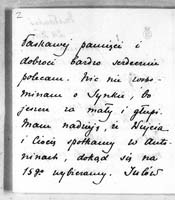 2
łaskawej pamięci i
dobroci bardzo serdecznie
polecam. Nic nie wspo-
minam o Synku, bo
jeszcze za mały i głupi.
Mam nadzieję, że Wujcia
i Ciocię spotkamy w Anto-
ninach, dokąd się na
15go wybieramy.